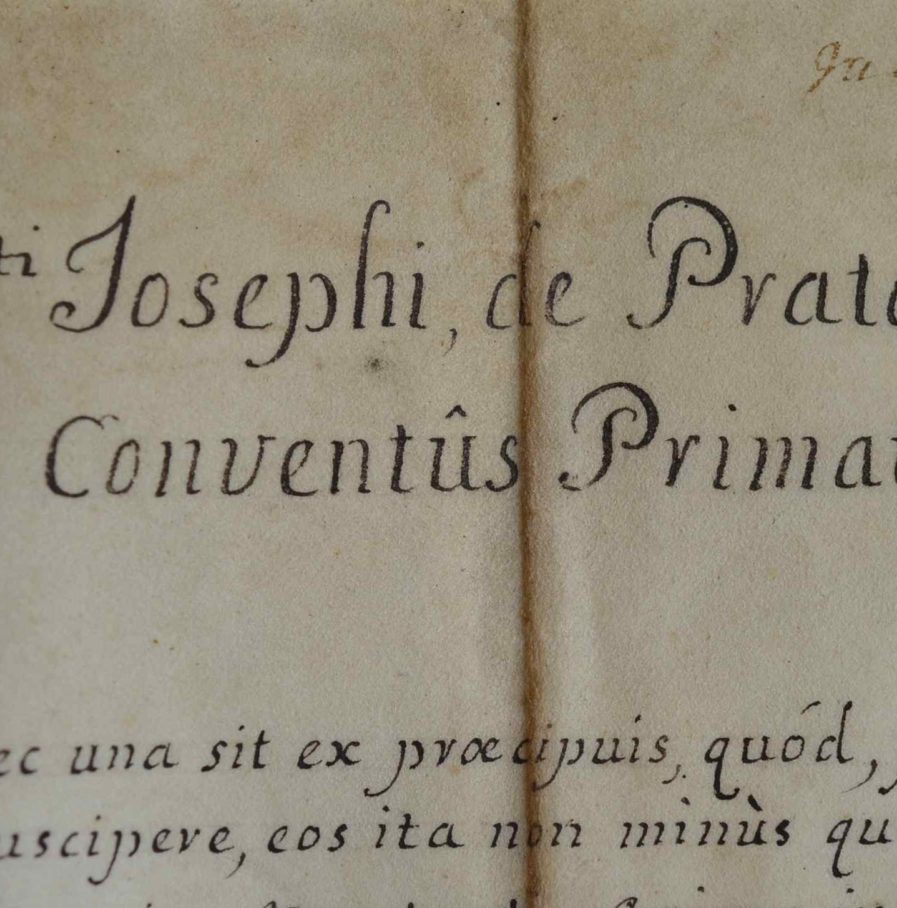 Ju
ti Josephi, de Prato
Conventûs Prima
ec una sit ex præcipuis, quód,
uscipere, eos ita non minùs qu